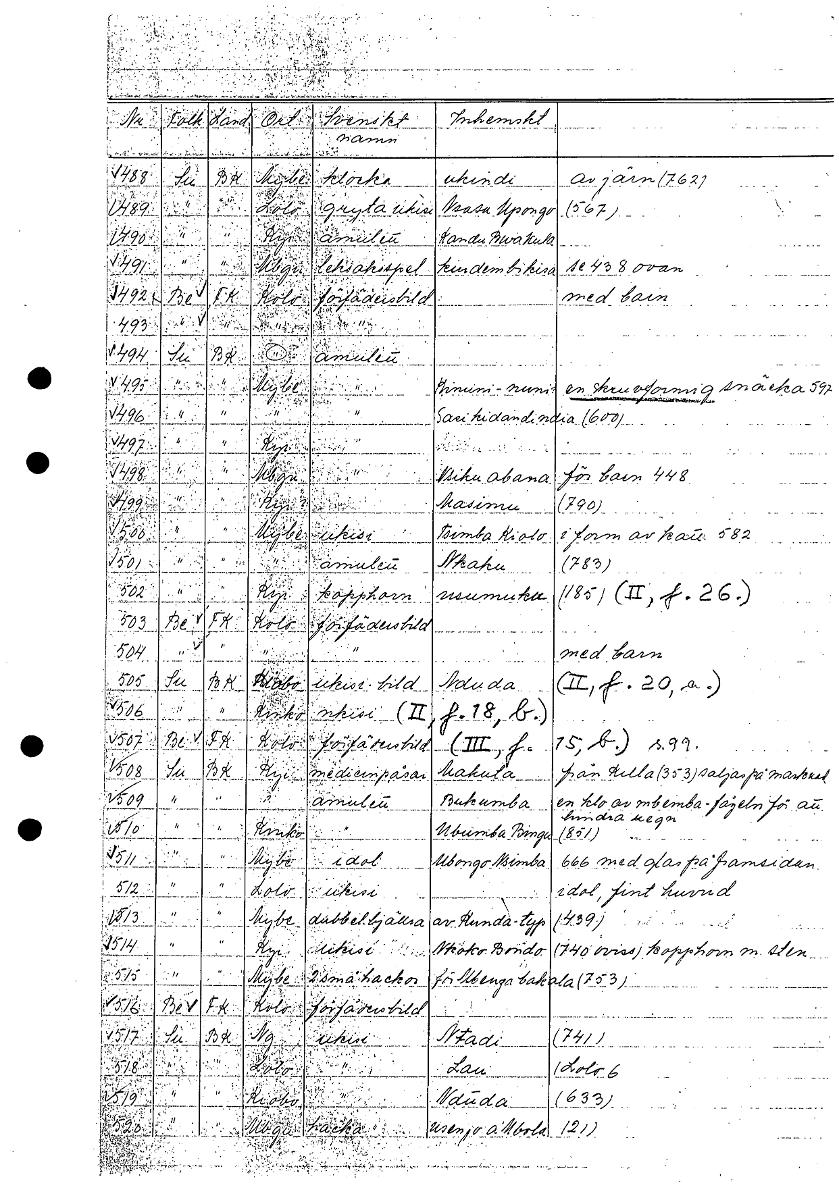 Nr Folk Land Ort Svenskt namn Inhemskt
√488 Su BK Mybe klocka nkindi av järn (762)
√489 " " Lolo gryta nkisi Nsasa Mpongo (567)
√490 " " Kyi amulett Kandu Bwakula
√491 " " Mbgu leksaksspel kundembikisa se 438 ovan
√492 Be √ FK Kolo förfädersbild med barn
493 " √ " " "
√494 Su BK " amulett
√495 " " Mybe " en skruvformig snäcka 597
√496 " " " " (600)
√497 " " Kyi "
√498 " " Mbgu " Nsiku abana för barn 448
√499 " " Kyi " Masimu (790)
√500 " " Mybe nkisi Tsimba Kiolo i form av katt 582
√501 " " " amulett Nkaku (783)
502 " " Kyi kopphorn nsumuka (185) (II, f. 26.)
503 Be √ FK Kolo förfädersbild
504 " √ " " " med barn
505 Su BK Kiobo nkisi-bild Nduda (II, f. 20, a.)
√506 " " Knko nkisi (II, f. 18, b.)
√507 Be √ FK Kolo förfädersbild (III, f. 15, b.) s.99.
√508 Su BK Kyi medicinpåsar Makula från källa (353) säljas på marknad
√509 " " " amulett Bukumba en klo av mbemba-fågeln för att hindra regn
√510 " " Knko " Mbumba Bingu (851)
√511 " " Mybe idol Mbongo Nsimba 666 med glas på framsidan
512 " " Lolo nkisi idol, fint huvud
√513 " " Mybe dubbelbjällra av Kunda-typ (439)
√514 " " Kyi nkisi Nkoko Bondo (740 oviss) kopphorn m. sten
515 " " Mybe 2 små hackor för Mbenga bakala (753)
√516 Be √ FK Kolo förfädersbild
√517 Su BK Ng nkisi Ntadi (741)
518 " " Lolo " Lau (Lolo 6
√519 " " Kiobo " Nduda (633)
520 " " Mbgu hacka nsenjo a Mbola (21)